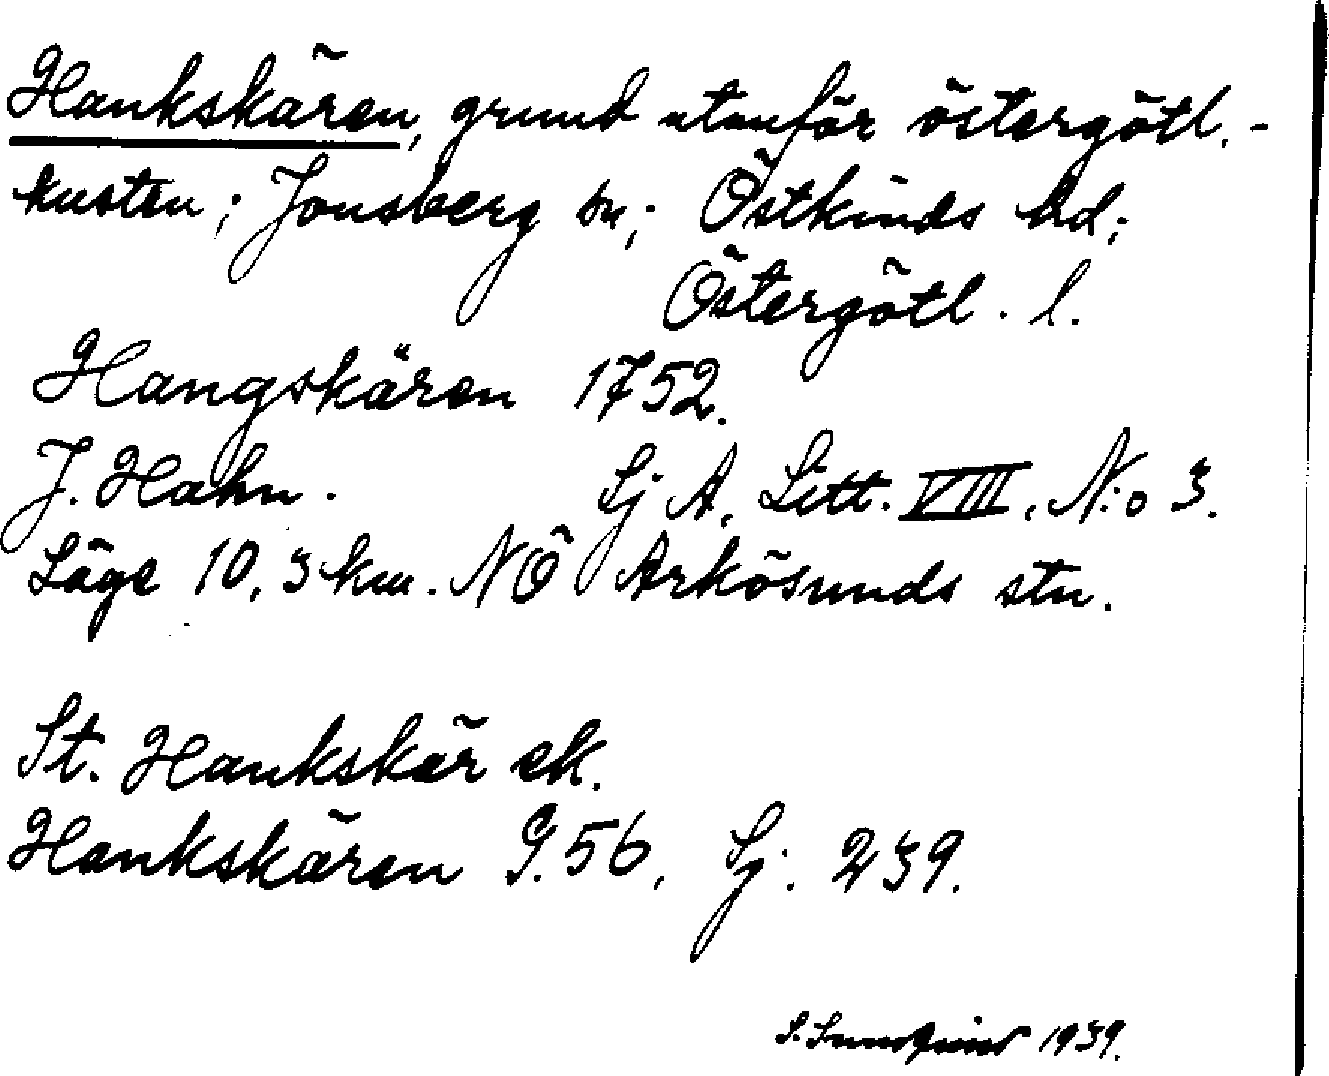 Hankskären, grund utanför östergötl.-
kusten; Jonsberg sn; Östkinds hd;
Östergötl. l.
Hangskären 1752.
J. Hahn. Sj A, Litt. VIII, N:o 3.
Läge 10,3 km. NÖ Arkösunds stn.
St. Hankskär ek.
Hankskären G. 56, Sj. 239.
S. Sundqvist 1939.